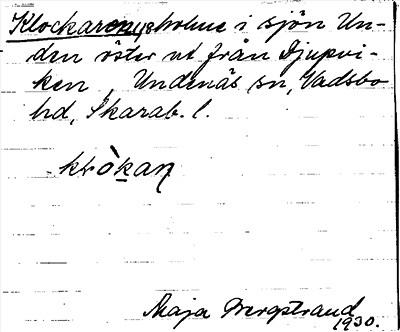 Klockarens holme i sjön Un-
den öster ut från Djupvi-
ken, Undenäs sn, Vadsbo
hd, Skarab. l.
Maja Bergstrand
1930.